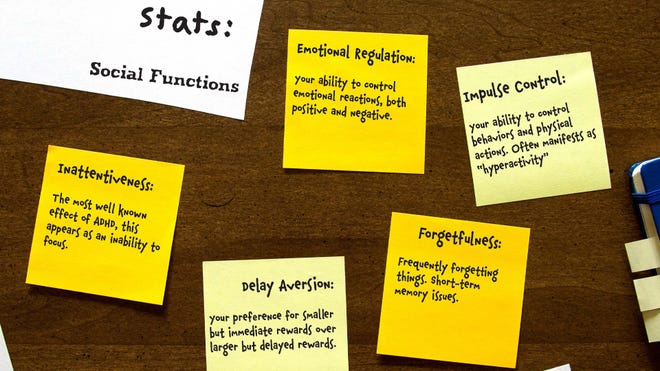 stats:
Social Functions
Emotional Regulation:
your ability to control
emotional reactions, both
positive and negative.
Impulse Control:
your ability to control
behaviors and physical
actions. Often manifests as
"hyperactivity"
Inattentiveness:
The most well known
effect of ADHD, this
appears as an inability to
focus.
Delay Aversion:
your preference for smaller
but immediate rewards over
larger but delayed rewards.
Forgetfulness:
Frequently forgetting
things. Short-term
memory issues.